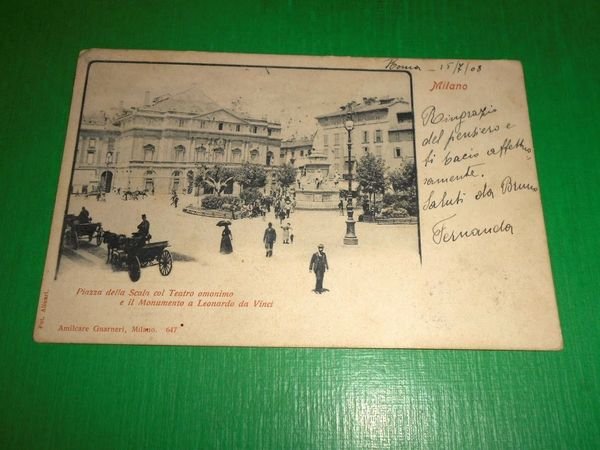 Roma - 15/7/03
Milano
Ringrazio
del pensiero e
ti bacio affettuo,
samente.
Saluti da Bruno
Fernanda
Piazza della Scala col Teatro omonimo
e il Monumento a Leonardo da Vinci
Fot. Alinari.
Amilcare Guarneri, Milano. 647